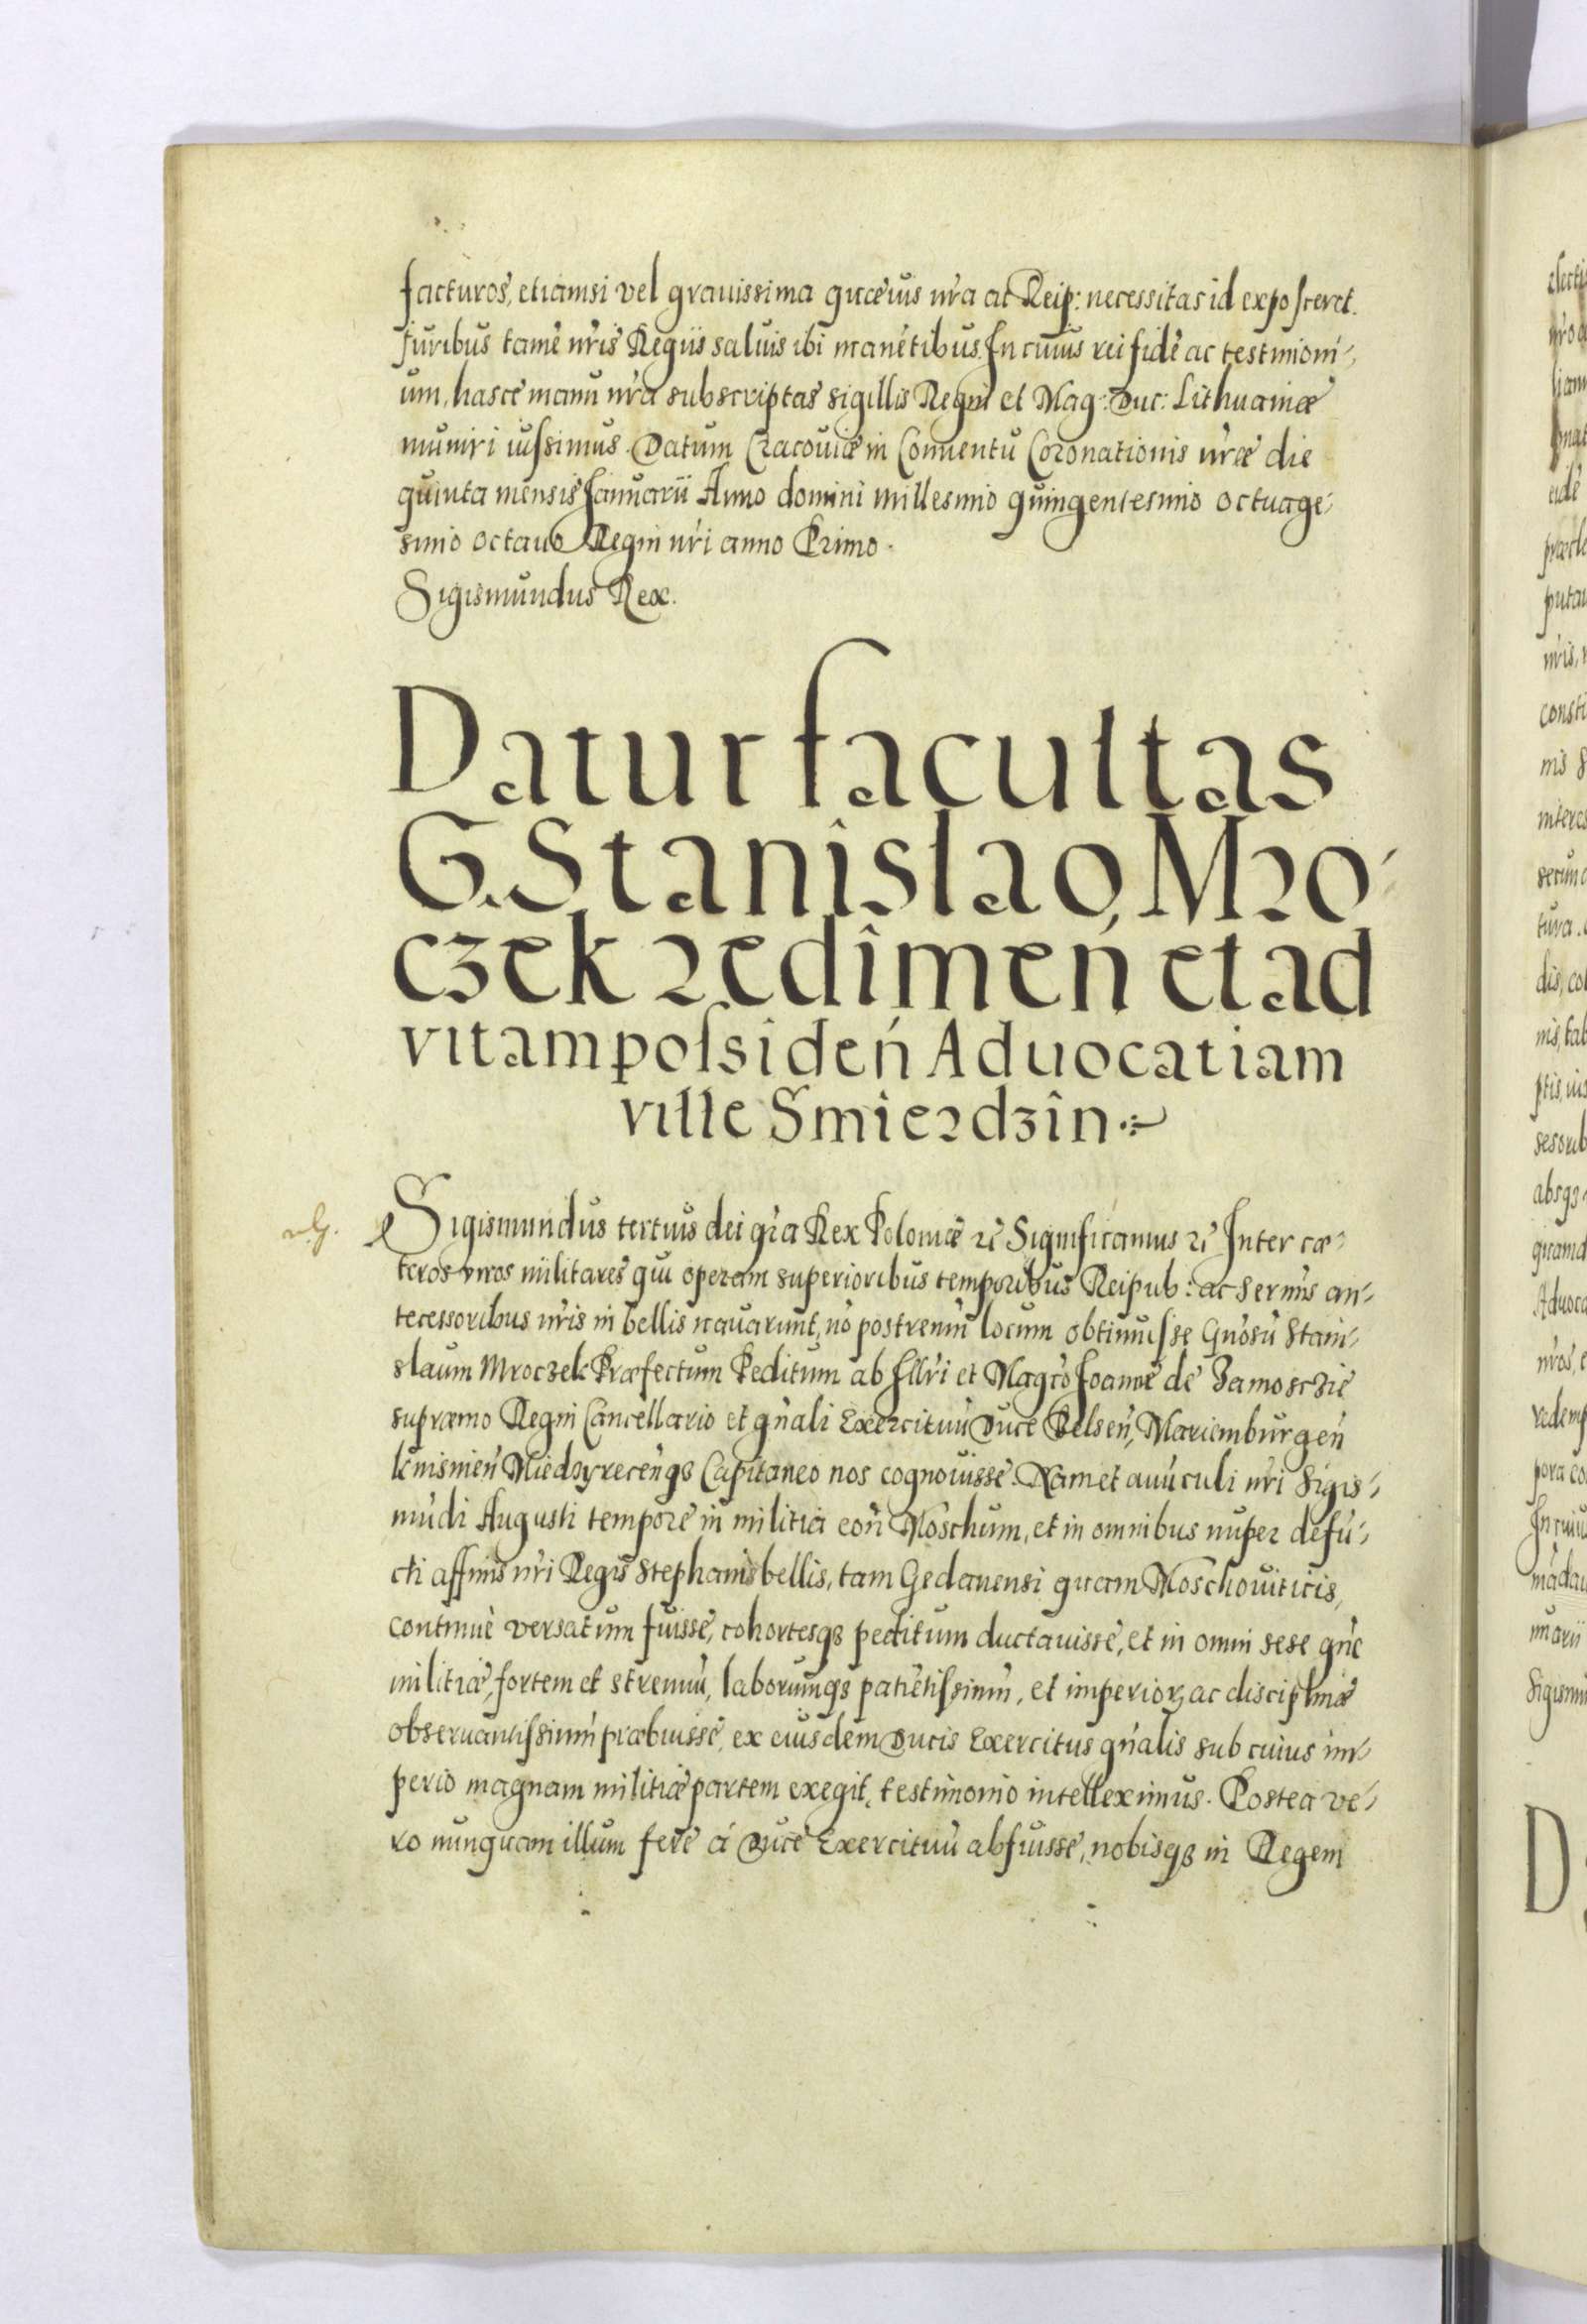 facturos, etiamsi vel grauissima quæuis nr̃a at Reip: necessitas id exposceret.
Juribus tamẽ nr̃is Regiis saluis ibi manẽtibus. In cuius rei fidẽ ac testimoni-
um, hasce manu nr̃a subscriptas sigillis Regni et Mag: Duc: Lithuaniæ
muniri iussimus. Datum Cracouiæ in Conuentu Coronationis nr̃æ die
quinta mensis Januarii Anno domini millesimo quingentesimo octuage-
simo octauo Regni nr̃i anno Primo.
Sigismundus Rex.
Datur facultas
G. Stanislao Mro-
czek redimeń et ad
vitam possideń Aduocatiam
ville Smierdzin
Sigismundus tertius dei gr̃a Rex Poloniæ ꝛc̃ Significamus ꝛc̃ Inter cæ-
teros viros militares qui operam superioribus temporibus Reipub: ac Sermis an-
tecessoribus nr̃is in bellis nauarunt, nõ postremũ locum obtinuisse Gnosũ Stani-
slaum Mroczek Præfectum Peditum ab Illri et Magco Joanne de Zamosczie
supræmo Regni Cancellario et gñali Exercituũ Duce Belseñ, Mariemburgeñ
Knisineñ Miedzyreceñqȝ Capitaneo nos cognouisse. Nam et auũculi nr̃i Sigis-
mũdi Augusti tempore in militia coñ Moschum, et in omnibus nuper defũ-
cti affinis nr̃i Regis Stephani bellis, tam Gedanensi quam Moschouiticis,
continuè versatum fuisse, cohortesqȝ peditum ductauisse, et in omni sese gñe
militiæ, fortem et strenuũ, laborumqȝ patiẽtissimũ, et imperioꝝ ac disciplinæ
obseruantissimũ præbuisse, ex eiusdem Ducis Exercitus gñalis sub cuius im-
perio magnam militiæ partem exegit, testimonio intelleximus. Postea ve-
ro nunquam illum ferè á Duce Exercituũ abfuisse, nobisqȝ in Regem